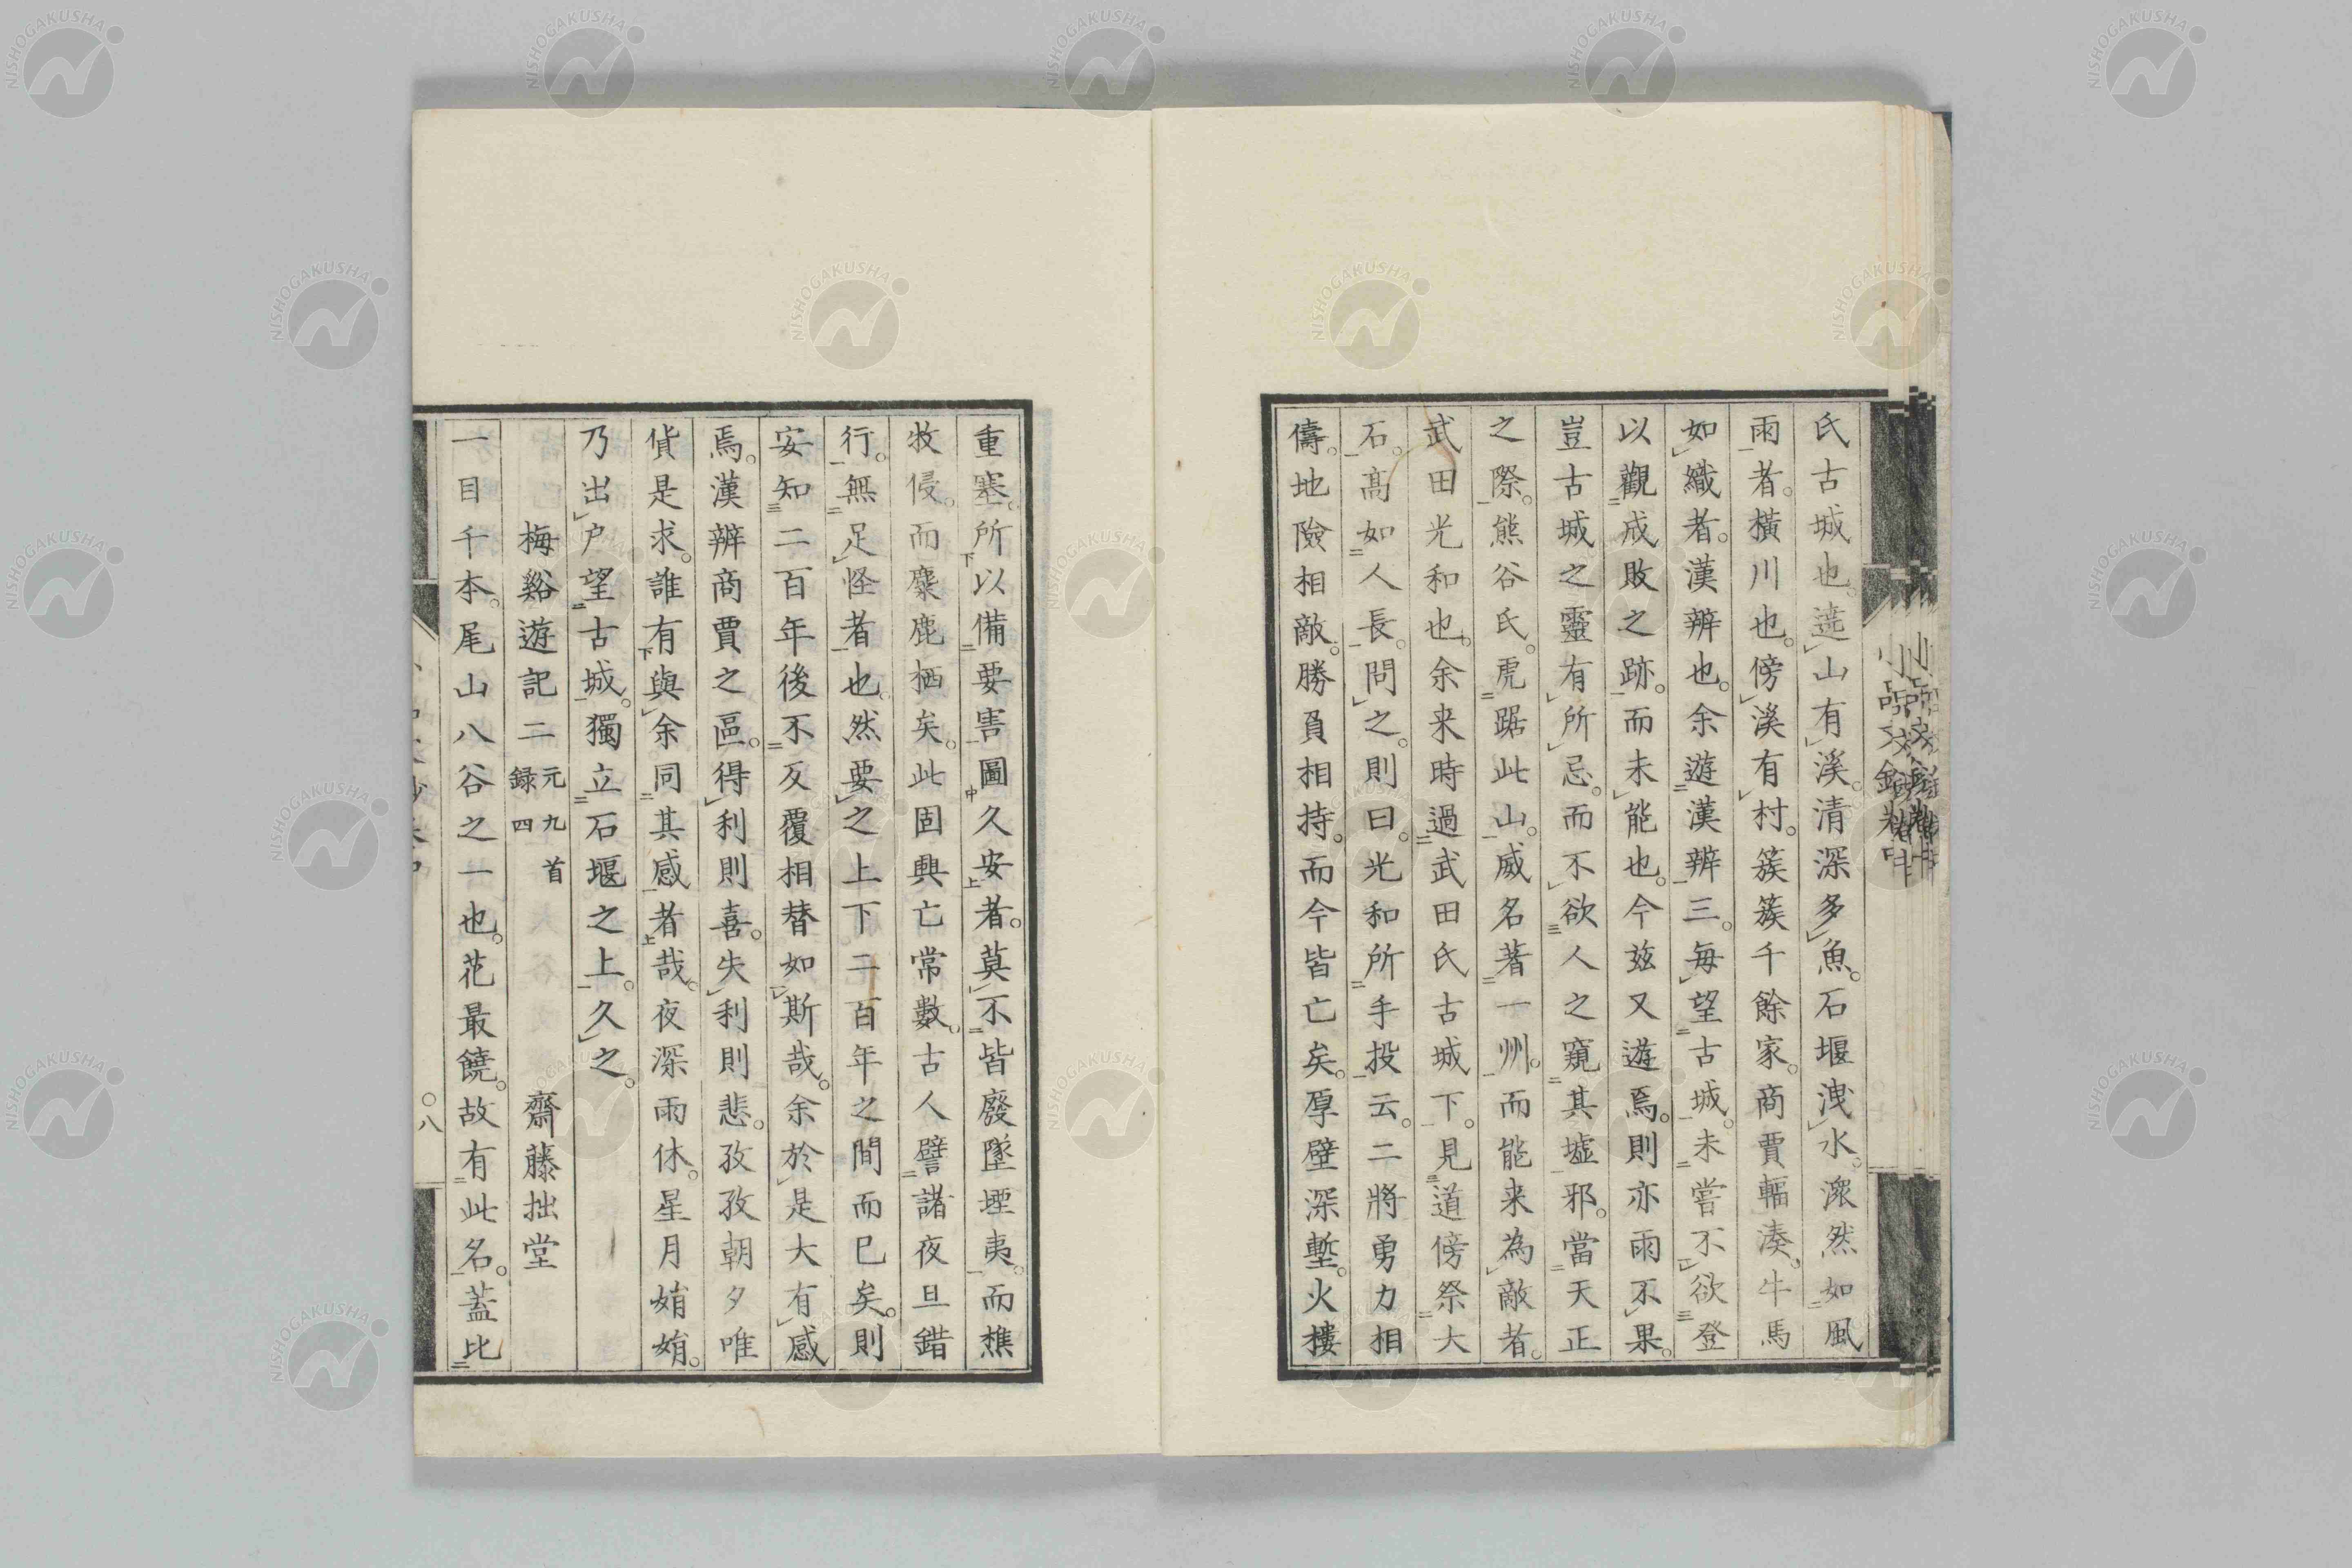 氏古城也。遶山有溪。清深多魚。石堰洩水。潨然如風
雨者。橫川也。傍溪有村。簇簇千餘家。商賈輻湊。牛馬
如織者。漢辨也。余遊漢辨三。每望古城。未嘗不欲登
以觀成敗之跡。而未能也。今茲又遊焉。則亦雨不果。
豈古城之靈有所忌。而不欲人之窺其墟邪。當天正
之際。熊谷氏。虎踞此山。威名著一州。而能来為敵者。
武田光和也。余来時過武田氏古城下。見道傍祭大
石。高如人長。問之。則曰。光和所手投云。二將勇力相
儔。地險相敵。勝負相持。而今皆亡矣。厚壁深塹。火樓
重塞。所以備要害圖久安者。莫不皆廢墜堙夷。而樵
牧侵。而麋鹿栖矣。此固興亡常數。古人譬諸夜旦錯
行。無足怪者也。然要之上下二百年之間而已矣。則
安知二百年後不反覆相替如斯哉。余於是大有感
焉。漢辨商賈之區。得利則喜。失利則悲。孜孜朝夕唯
貨是求。誰有與余同其感者哉。夜深雨休。星月娟娟。
乃出戶望古城。獨立石堰之上。久之。
梅谿遊記二 元九首錄四 齋藤拙堂
一目千本。尾山八谷之一也。花最饒。故有此名。蓋比
〇八